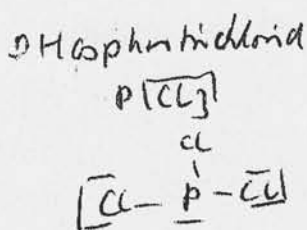 PHosphortrichlorid
P|CL3|
Cl
|Cl – P – Cl|